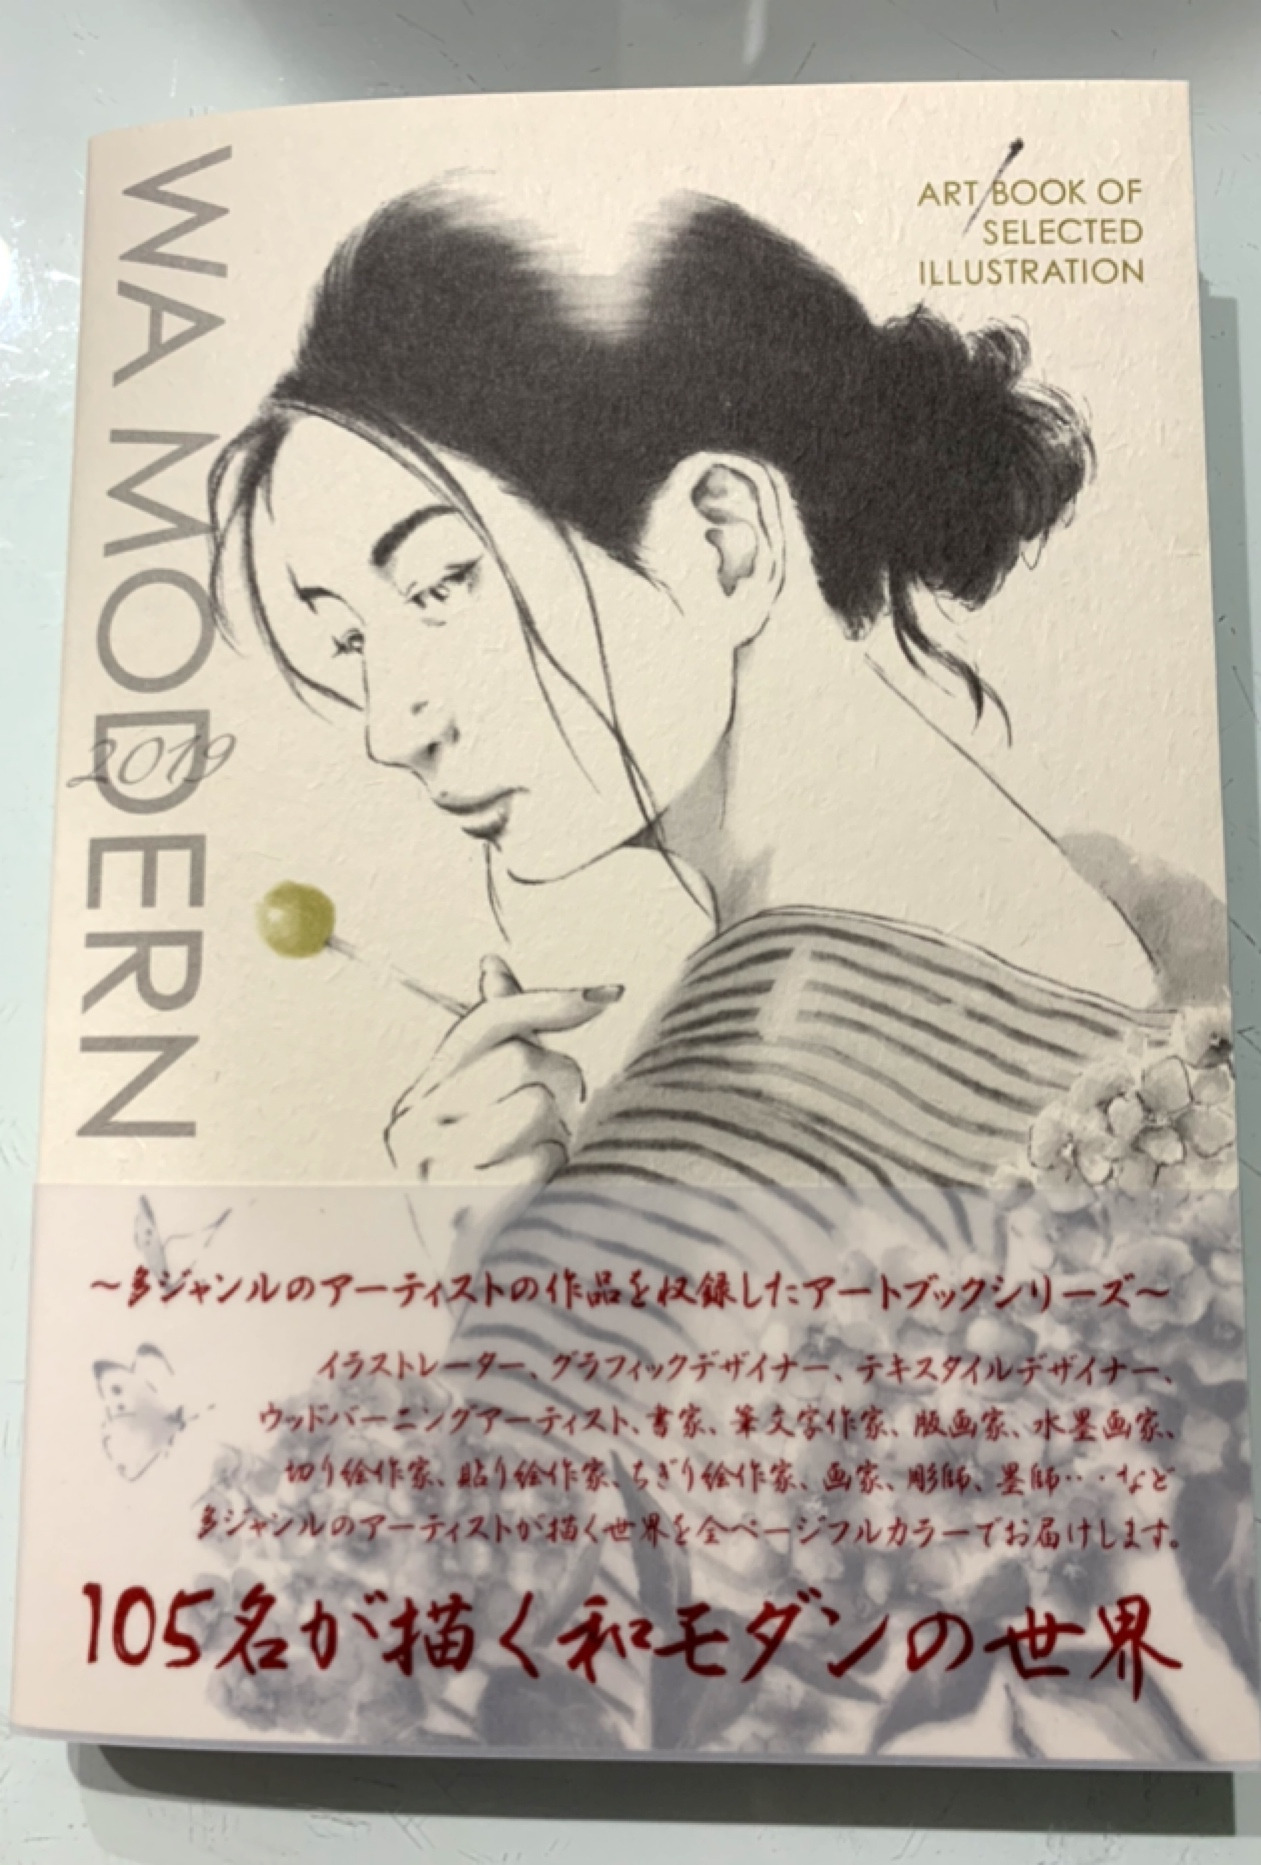 ART BOOK OF
SELECTED
ILLUSTRATION
WA MODERN
2019
～多ジャンルのアーティストの作品を収録したアートブックシリーズ～
イラストレーター、グラフィックデザイナー、テキスタイルデザイナー、
ウッドバーニングアーティスト、書家、筆文字作家、版画家、水墨画家、
切り絵作家、貼り絵作家、ちぎり絵作家、画家、彫師、墨師・・・など
多ジャンルのアーティストが描く世界を全ページフルカラーでお届けします。
105名が描く和モダンの世界